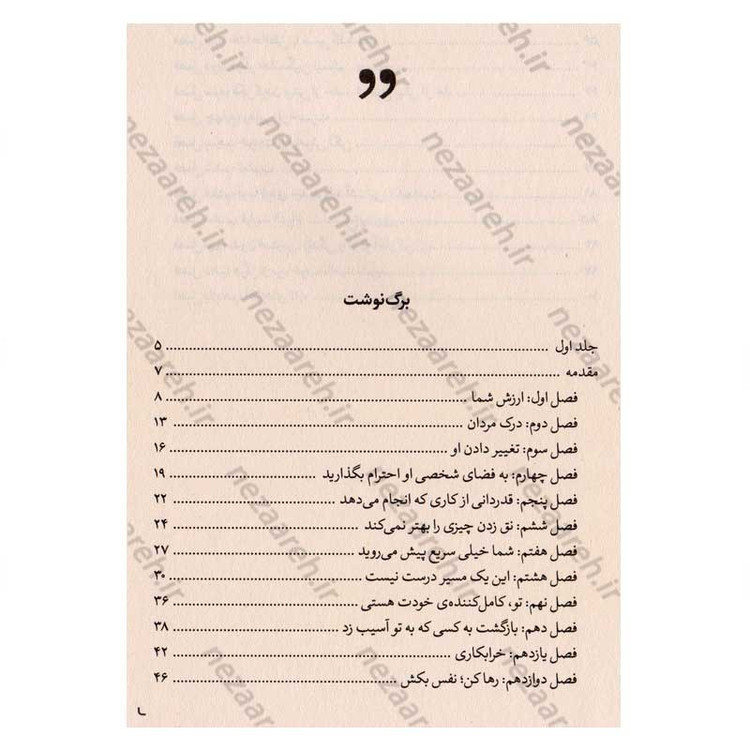 برگ‌نوشت
جلد اول ........ ۵
مقدمه ........ ۷
فصل اول: ارزش شما ........ ۸
فصل دوم: درک مردان ........ ۱۳
فصل سوم: تغییر دادن او ........ ۱۶
فصل چهارم: به فضای شخصی او احترام بگذارید ........ ۱۹
فصل پنجم: قدردانی از کاری که انجام می‌دهد ........ ۲۲
فصل ششم: نق زدن چیزی را بهتر نمی‌کند ........ ۲۴
فصل هفتم: شما خیلی سریع پیش می‌روید ........ ۲۷
فصل هشتم: این یک مسیر درست نیست ........ ۳۰
فصل نهم: تو، کامل‌کننده‌ی خودت هستی ........ ۳۶
فصل دهم: بازگشت به کسی که به تو آسیب زد ........ ۳۸
فصل یازدهم: خرابکاری ........ ۴۲
فصل دوازدهم: رها کن؛ نفس بکش ........ ۴۶
nezaareh.ir